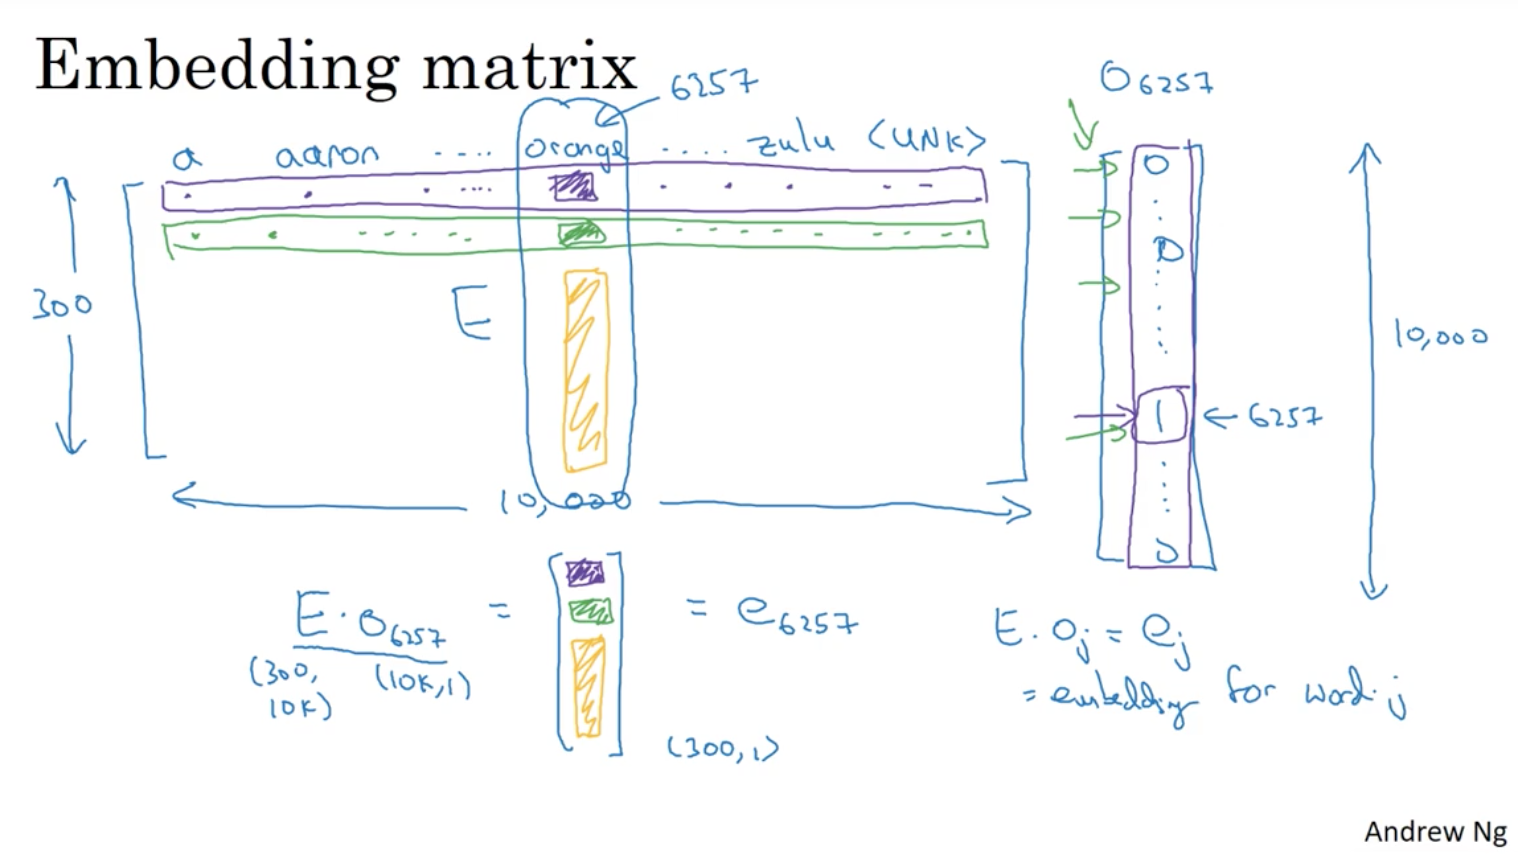 Embedding matrix
6257
O6257
a aaron .... orange ..... zulu <UNK>
300
E
10,000
1
← 6257
0
0
0
10,000
E · O6257 = [ ] = e6257
(300, 10K) (10K, 1)
(300, 1)
E · oj = ej
= embedding for word j
Andrew Ng